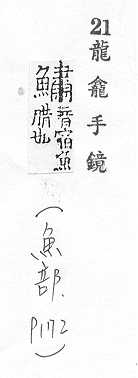 21龍龕手鏡
鱐音宿魚
腊也
(魚部. P172)